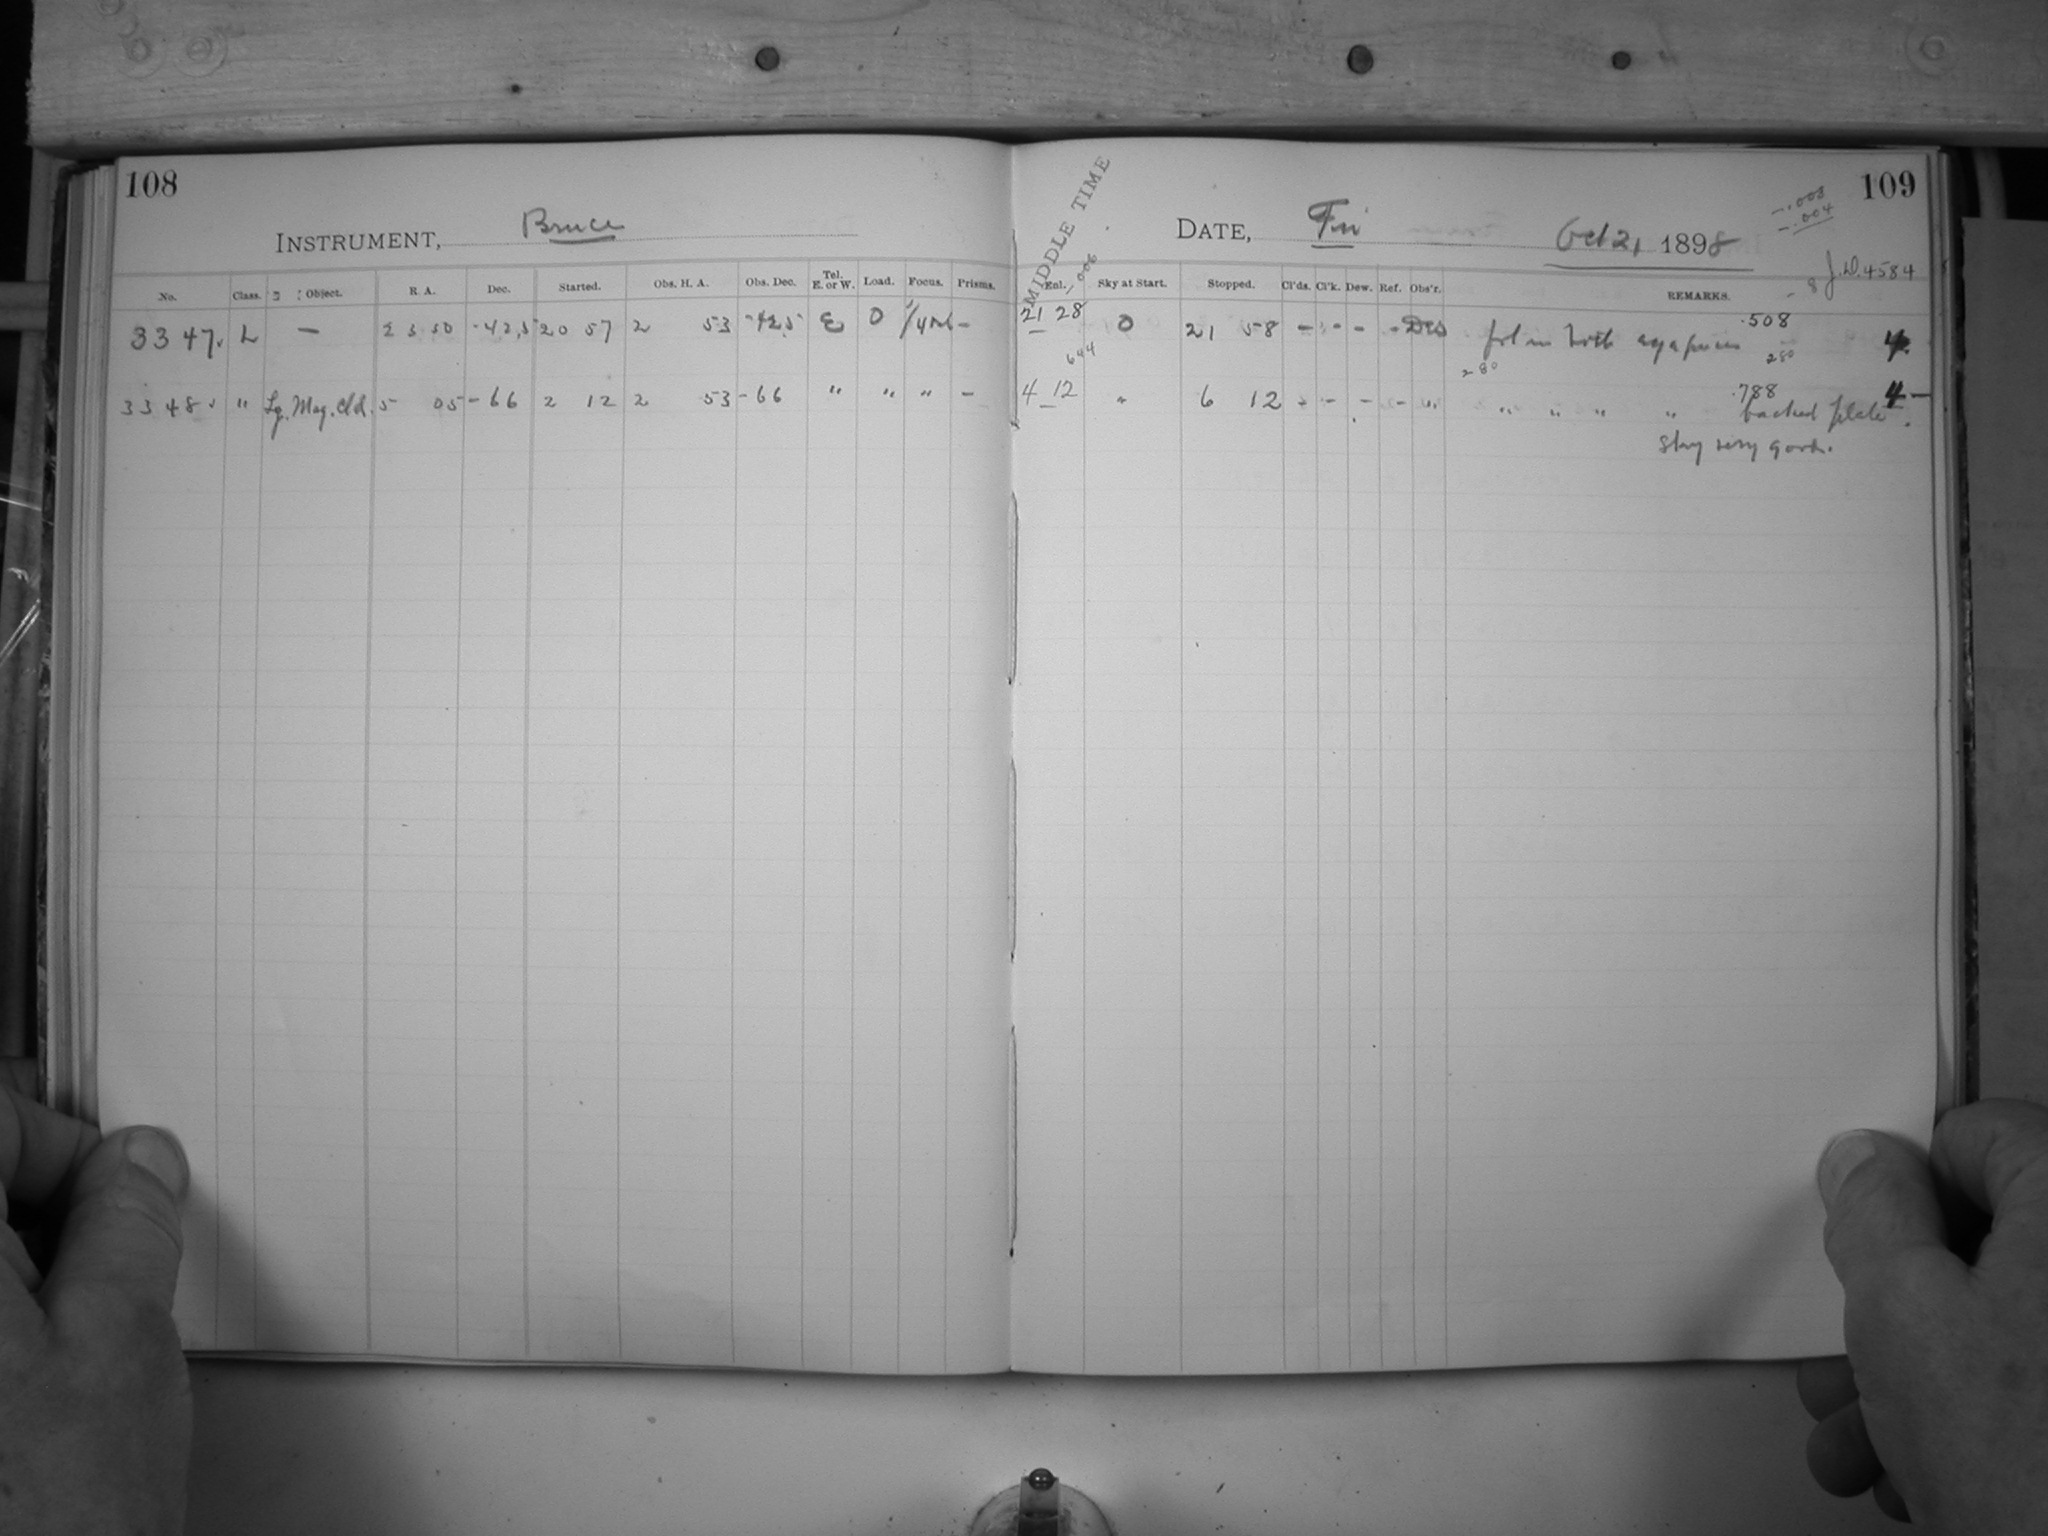 108
INSTRUMENT, Bruce
No. Class. Object. R. A. Dec. Started. Obs. H. A. Obs. Dec. Tel. E. or W. Load. Focus. Prisms.
3347 L — 23 50 -42,5 20 57 2 53 -42,5 E 0 —
3348 " Lg. Mag. Cld. 5 05 -66 2 12 2 53 -66 " " " —
109
MIDDLE TIME
-.003
-.004
DATE, Fri Oct 21 1898
.006
J.D. 4584
Enl. Sky at Start. Stopped. Cl'ds. Cl'k. Dew. Ref. Obs'r. REMARKS.
8
21 28 0 21 58 - - - - in both .508 4
644 280 280
4 12 " 6 12 - - - - " " " " " .788 4 —
backed plate.
Sky very good.